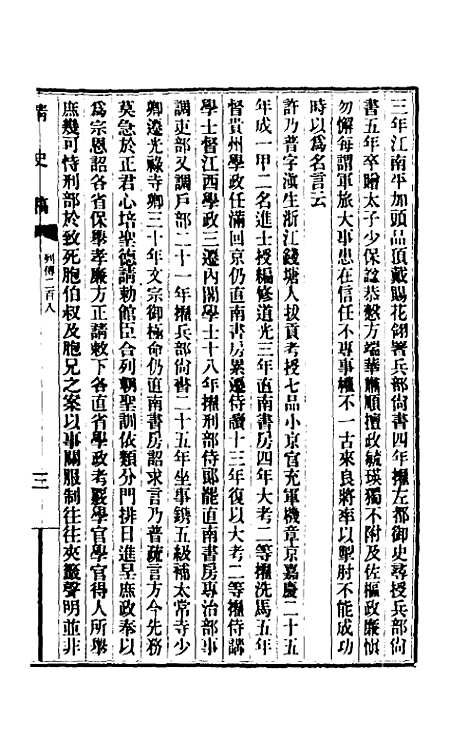 三年江南平加頭品頂戴賜花翎署兵部尙書四年擢左都御史尋授兵部尙
書五年卒贈太子少保諡恭慤方端華肅順擅政毓瑛獨不附及佐樞政廉愼
勿懈每謂軍旅大事患在信任不專事權不一古來良將率以掣肘不能成功
時以爲名言云
許乃普字滇生浙江錢塘人拔貢考授七品小京官充軍機章京嘉慶二十五
年成一甲二名進士授編修道光三年直南書房四年大考二等擢洗馬五年
督貴州學政任滿回京仍直南書房累遷侍讀十三年復以大考二等擢侍講
學士督江西學政三遷內閣學士十八年擢刑部侍郞罷直南書房專治部事
調吏部又調戶部二十一年擢兵部尙書二十五年坐事鐫五級補太常寺少
卿遷光祿寺卿三十年文宗御極命仍直南書房詔求言乃普疏言方今先務
莫急於正君心培聖德請勅館臣合列朝聖訓依類分門排日進呈庶政奉以
爲宗恩詔各省保舉孝廉方正請敕下各直省學政考覈學官學官得人所舉
庶幾可恃刑部於致死胞伯叔及胞兄之案以事關服制往往夾籤聲明並非
清史稿
列傳二百八
三